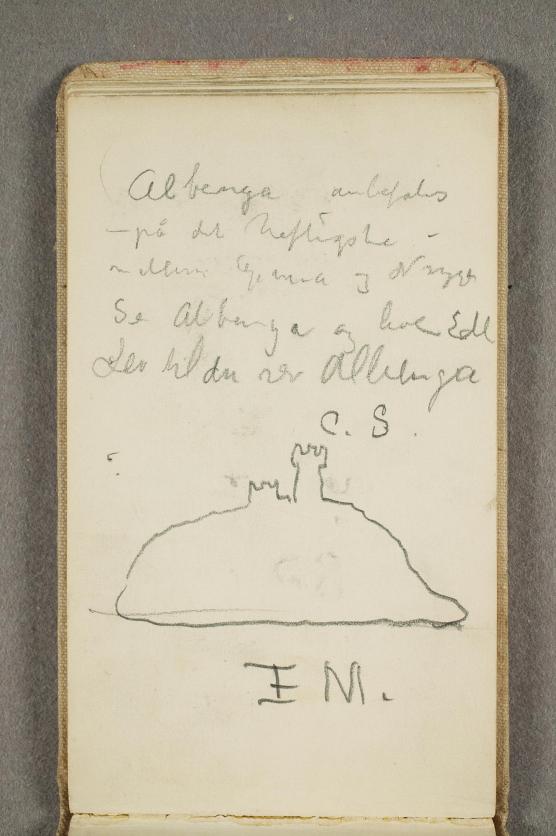 Albenga anbefales
– på det heftigste –
mellem Genua og Nizza
Se Albenga og hvil Edl
Lev til du ser Albenga
C. S.
I M.